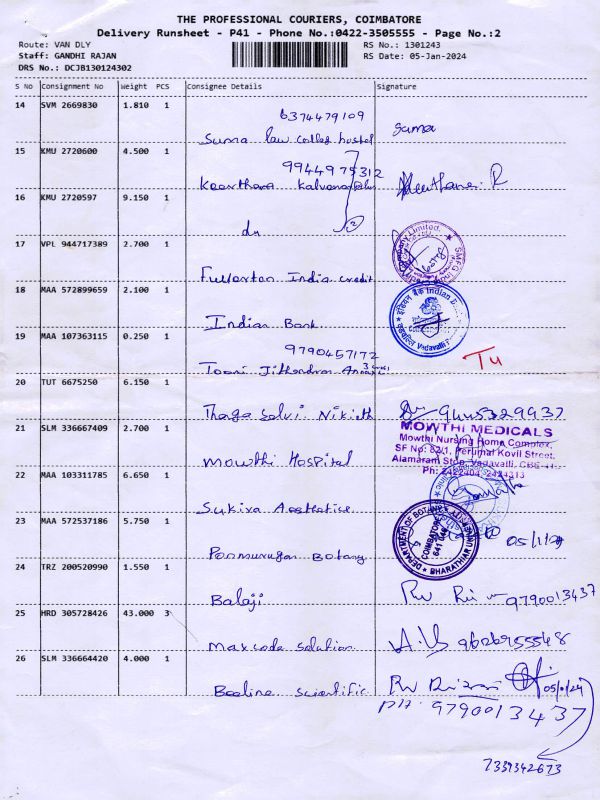 THE PROFESSIONAL COURIERS, COIMBATORE
Delivery Runsheet - P41 - Phone No.:0422-3505555 - Page No.:2
Route: VAN DLY
RS No.: 1301243
Staff: GANDHI RAJAN
RS Date: 05-Jan-2024
DRS No.: DCJB130124302
S No Consignment No Weight PCS Consignee Details Signature
14 SVM 2669830 1.810 1
6374479109
Suma law colleg hostel Suma
15 KMU 2720600 4.500 1
9944975312
Keerthana
16 KMU 2720597 9.150 1
do
17 VPL 944717389 2.700 1
Fullerton India credit
SMFG India
Limited.
18 MAA 572899659 2.100 1
Indian Bank
इंडियन बैंक Indian
Vadavalli
19 MAA 107363115 0.250 1
9790457172
Jithendran
Tu
20 TUT 6675250 6.150 1
Thaga Selvi Nikith
21 SLM 336667409 2.700 1
Mowthi Hospital
MOWTHI MEDICALS
Mowthi Nursing Home Complex,
SF No: 82/1, Perumal Kovil Street,
Alamaram Stop, Vadavalli, CBE-41.
Ph: 2422404, 2424313
22 MAA 103311785 6.650 1
Sukira Aesthetise
23 MAA 572537186 5.750 1
Ponmurugan Botany
DEPARTMENT OF BOTANY
COIMBATORE
641 046
BHARATHIAR
05/1/24
24 TRZ 200520990 1.550 1
Balaji
9790013437
25 HRD 305728426 43.000 3
Maxcode solution
26 SLM 336664420 4.000 1
Beeline scientific
05/01/24
PH: 9790013437
7339342673